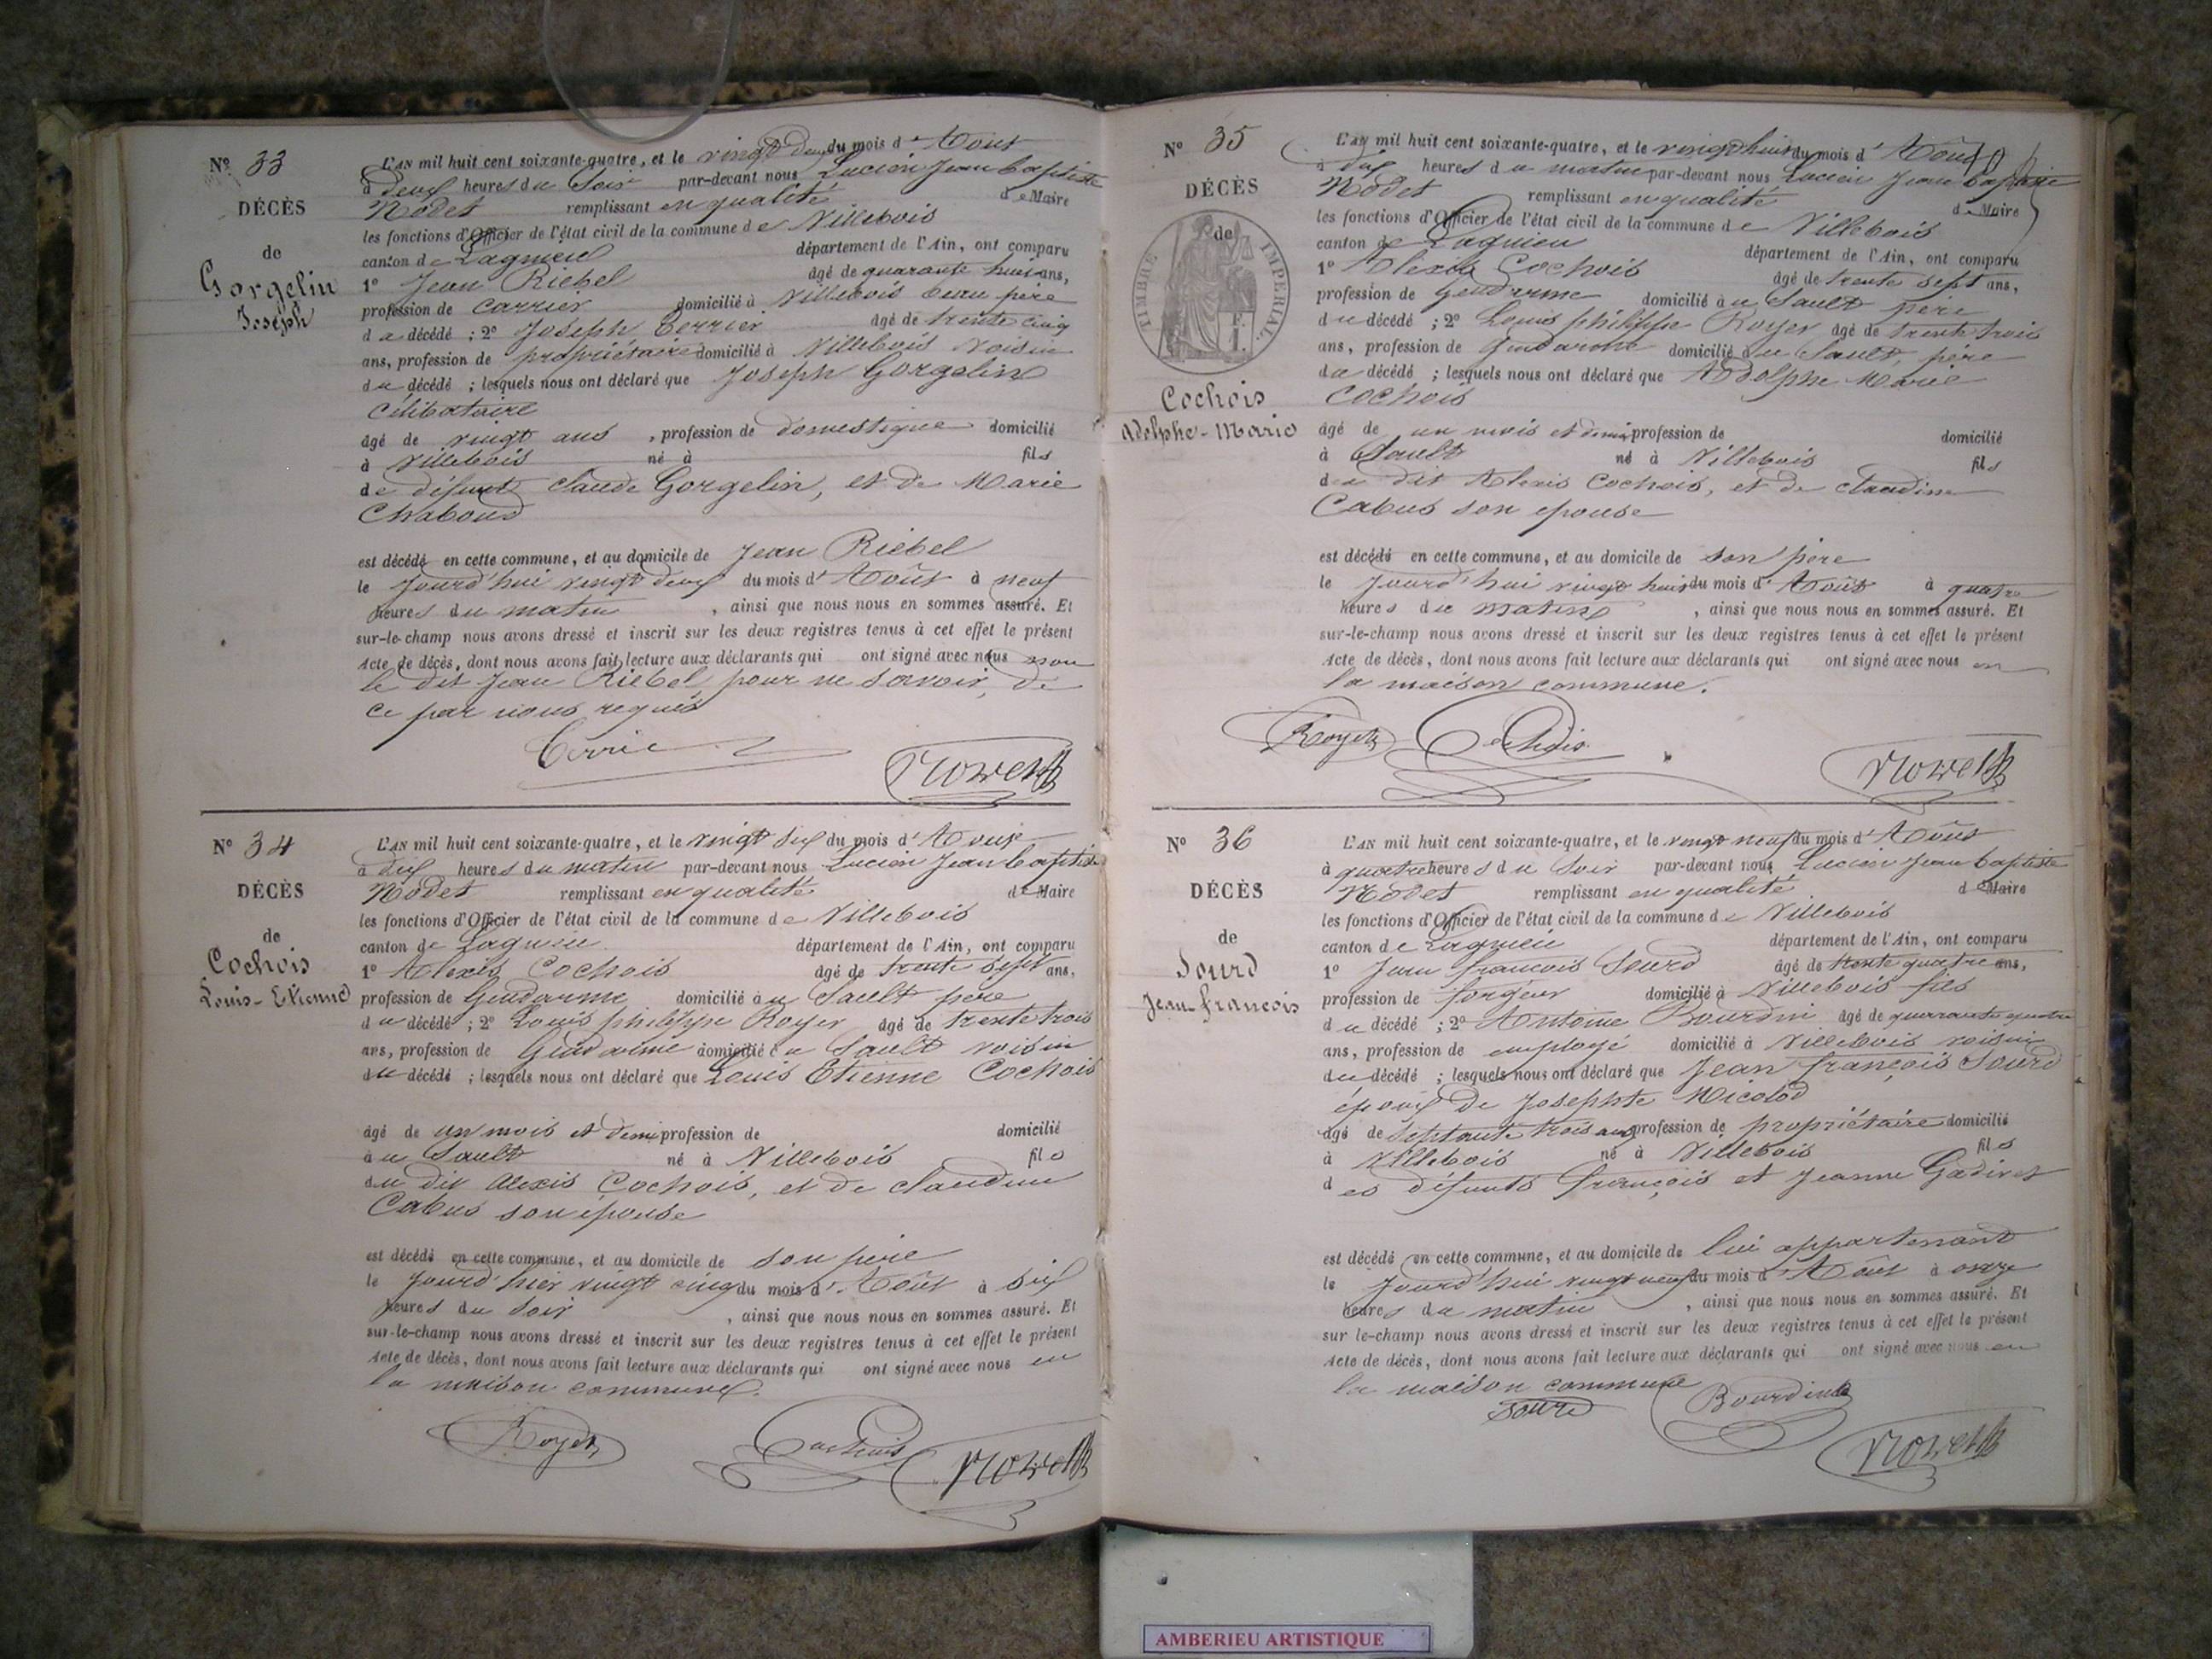 Nº 33
DÉCÈS
de
Gorgelin
Joseph
L'AN mil huit cent soixante-quatre, et le vingt deux du mois d'Août
à deux heures du Soir par-devant nous Lucien Jean baptiste
Nodet remplissant en qualité de Maire
les fonctions d'Officier de l'état civil de la commune de Villebois
canton de Lagnieu département de l'Ain, ont comparu
1º Jean Riebel âgé de quarante huit ans,
profession de carrier domicilié à Villebois beau père
du décédé ; 2º Joseph Terrier âgé de trente cinq
ans, profession de propriétaire domicilié à Villebois voisin
du décédé ; lesquels nous ont déclaré que Joseph Gorgelin
célibataire
âgé de vingt ans , profession de domestique domicilié
à Villebois né à fils
de défunt Claude Gorgelin, et de Marie
Chaboud
est décédé en cette commune, et au domicile de Jean Riebel
le Jourd'hui vingt deux du mois d'Août à neuf
heures du matin , ainsi que nous nous en sommes assuré. Et
sur-le-champ nous avons dressé et inscrit sur les deux registres tenus à cet effet le présent
Acte de décès, dont nous avons fait lecture aux déclarants qui ont signé avec nous non
le dit Jean Riebel pour ne savoir, de
ce par nous requis
Nº 34
DÉCÈS
de
Cochois
Louis-Etienne
L'AN mil huit cent soixante-quatre, et le vingt six du mois d'Août
à dix heures du matin par-devant nous Lucien Jean baptiste
Nodet remplissant en qualité de Maire
les fonctions d'Officier de l'état civil de la commune de Villebois
canton de Lagnieu département de l'Ain, ont comparu
1º Alexis Cochois âgé de trente sept ans,
profession de Gendarme domicilié au Sault père
du décédé ; 2º Louis philippe Royer âgé de trente trois
ans, profession de Gendarme domicilié au Sault voisin
du décédé ; lesquels nous ont déclaré que Louis Etienne Cochois
âgé de un mois et demi profession de domicilié
au Sault né à Villebois fils
du dit Alexis Cochois, et de claudine
Cabus son épouse
est décédé en cette commune, et au domicile de son père
le Jourd'hier vingt cinq du mois d'Août à six
heures du soir , ainsi que nous nous en sommes assuré. Et
sur-le-champ nous avons dressé et inscrit sur les deux registres tenus à cet effet le présent
Acte de décès, dont nous avons fait lecture aux déclarants qui ont signé avec nous en
la maison commune.
Royer Cochois
Nº 35
DÉCÈS
de
TIMBRE IMPÉRIAL
1 F.
Cochois
Adolphe-Marie
L'AN mil huit cent soixante-quatre, et le vingt huit du mois d'Août
à dix heures du matin par-devant nous Lucien Jean baptiste
Nodet remplissant en qualité de Maire
les fonctions d'Officier de l'état civil de la commune de Villebois
canton de Lagnieu département de l'Ain, ont comparu
1º Alexis Cochois âgé de trente sept ans,
profession de Gendarme domicilié au Sault père
du décédé ; 2º Louis philippe Royer âgé de trente trois
ans, profession de Gendarme domicilié au Sault père
du décédé ; lesquels nous ont déclaré que Adolphe Marie
Cochois
âgé de un mois et demi profession de domicilié
à Sault né à Villebois fils
du dit Alexis Cochois, et de claudine
Cabus son épouse
est décédé en cette commune, et au domicile de son père
le Jourd'hui vingt huit du mois d'Août à quatre
heures du matin , ainsi que nous nous en sommes assuré. Et
sur-le-champ nous avons dressé et inscrit sur les deux registres tenus à cet effet le présent
Acte de décès, dont nous avons fait lecture aux déclarants qui ont signé avec nous en
la maison commune.
Royer Cochois
Nº 36
DÉCÈS
de
Sourd
Jean-francois
L'AN mil huit cent soixante-quatre, et le vingt neuf du mois d'Août
à quatre heures du Soir par-devant nous Lucien Jean baptiste
Nodet remplissant en qualité de Maire
les fonctions d'Officier de l'état civil de la commune de Villebois
canton de Lagnieu département de l'Ain, ont comparu
1º Jean francois Sourd âgé de trente quatre ans,
profession de forgeur domicilié à Villebois fils
du décédé ; 2º Antoine Bourdin âgé de quarante quatre
ans, profession de employé domicilié à Villebois voisin
du décédé ; lesquels nous ont déclaré que Jean françois Sourd
époux de Josephte Nicolod
âgé de Septante trois ans profession de propriétaire domicilié
à Villebois né à Villebois fils
des défunts françois et Jeanne Gadivet
est décédé en cette commune, et au domicile de lui appartenant
le Jourd'hui vingt neuf du mois d'Août à onze
heures du matin , ainsi que nous nous en sommes assuré. Et
sur le-champ nous avons dressé et inscrit sur les deux registres tenus à cet effet le présent
Acte de décès, dont nous avons fait lecture aux déclarants qui ont signé avec nous en
la maison commune
Sourd Bourdin
AMBERIEU ARTISTIQUE